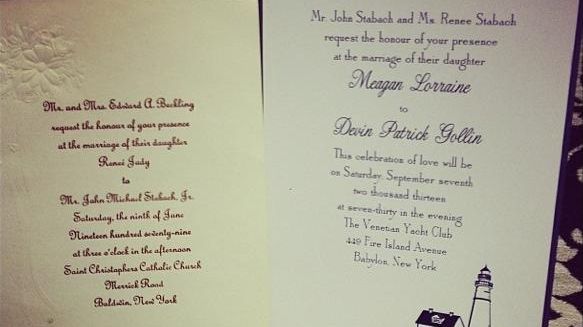 Mr. and Mrs. Edward A. Beckling
request the honour of your presence
at the marriage of their daughter
Reneé Judy
to
Mr. John Michael Stabach, Jr.
Saturday, the ninth of June
Nineteen hundred seventy-nine
at three o'clock in the afternoon
Saint Christophers Catholic Church
Merrick Road
Baldwin, New York
Mr John Stabach and Ms. Renee Stabach
request the honour of your presence
at the marriage of their daughter
Meagan Lorraine
to
Devin Patrick Gollin
This celebration of love will be
on Saturday, September seventh
two thousand thirteen
at seven-thirty in the evening
The Venetian Yacht Club
449 Fire Island Avenue
Babylon, New York